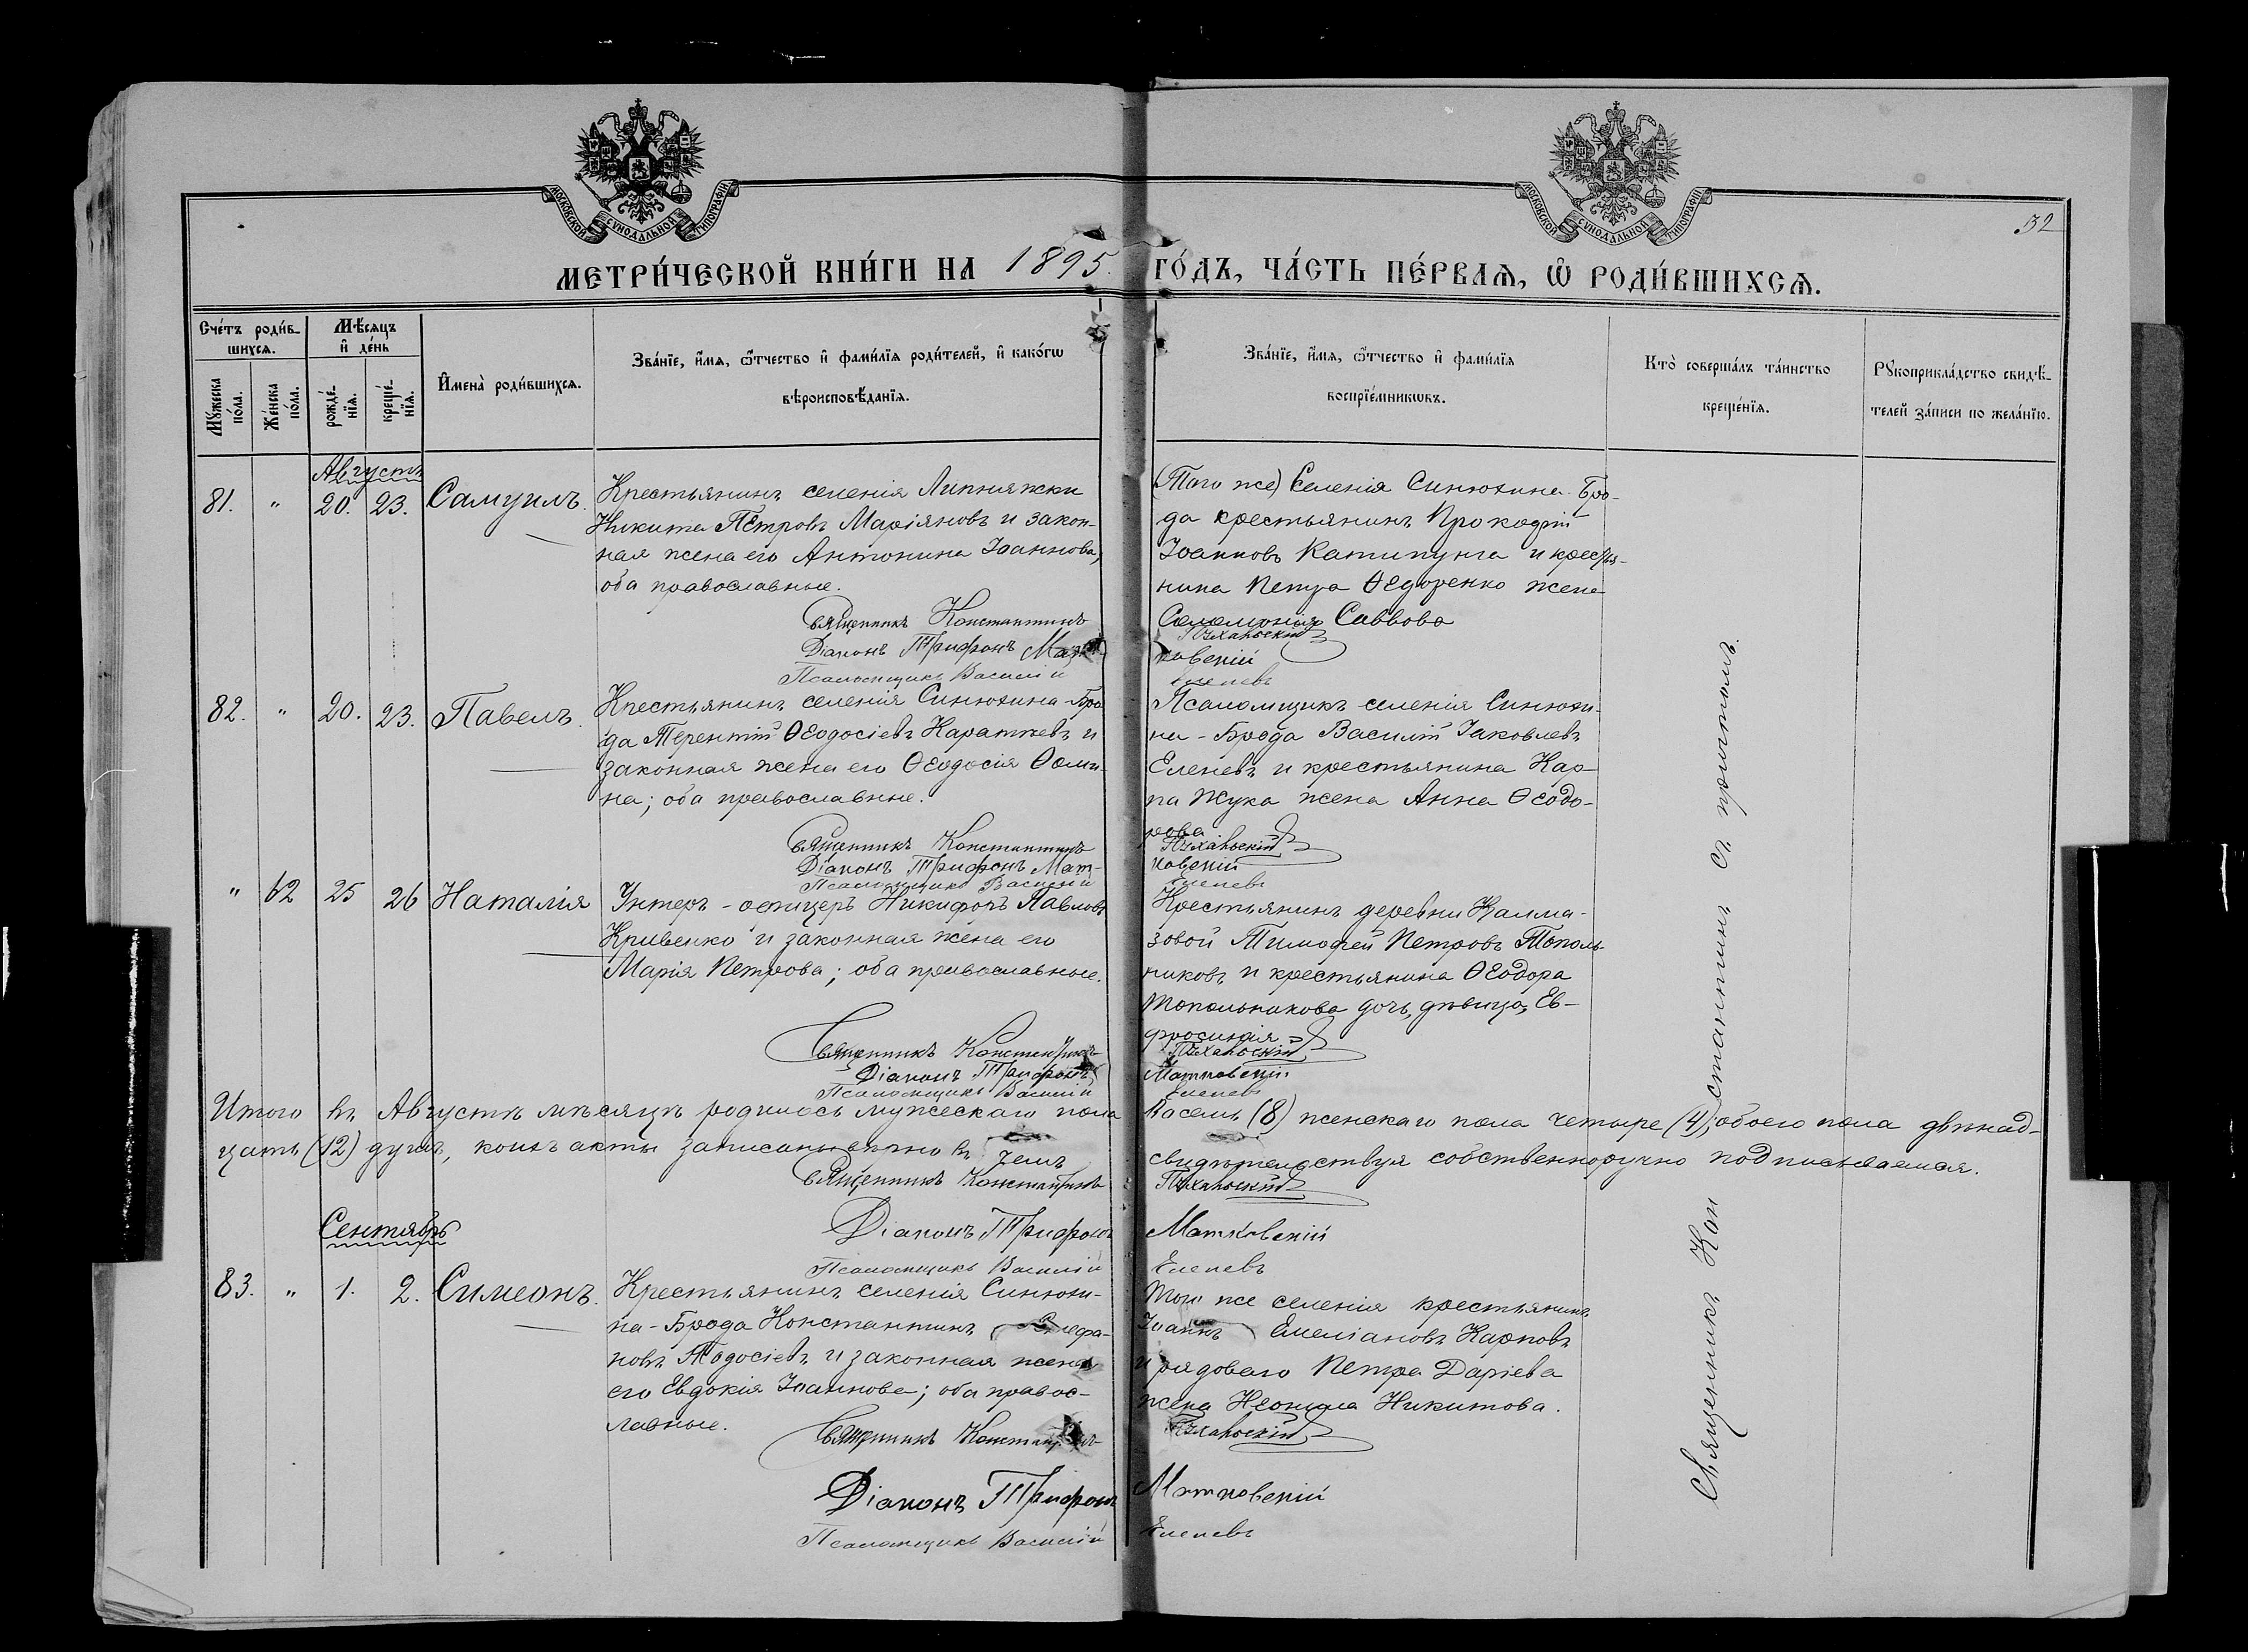 МОСКОВСКОЙ СѴНОДАЛЬНОЙ ТИПОГРАФІИ
МОСКОВСКОЙ СѴНОДАЛЬНОЙ ТИПОГРАФІИ
32
МЕТРИ́ЧЕСКОЙ КНИ́ГИ НА 1895. ГО́ДЪ, ЧА́СТЬ ПЕ́РВАѦ, Ѡ҆ РОДИ́ВШИХСѦ.
Сче́тъ роди́в-
шихсѧ.
Мꙋ́жеска по́ла.
Же́нска по́ла.
Мѣ́сѧцъ
и҆ де́нь
рожде́-
нїѧ.
креще́-
нїѧ.
И҆мена̀ роди́вшихсѧ.
Зва́нїе, и҆́мѧ, ѻ҆́тчество и҆ фами́лїѧ роди́телей, и҆ како́гѡ
вѣроисповѣ́данїѧ.
Зва́нїе, и҆́мѧ, ѻ҆́тчество и҆ фами́лїѧ
воспрїе́мникѡвъ.
Кто̀ соверша́лъ та́инство
креще́нїѧ.
Рꙋкоприкла́дство свидѣ́-
телей за́писи по жела́нїю.
Августъ
81. " 20. 23. Самуилъ.
Крестьянинъ селенія Липняжки
Никита Петровъ Маріяновъ и закон-
ная жена его Антонина Іоаннова,
оба православные.
Священникъ Константинъ
Діаконъ Трифонъ
Псаломщикъ Василій
(Того же) Селенія Синюхина-Бро-
да крестьянинъ Прокофій
Іоанновъ и крестья-
нина Петра Ѳедоренко жена
Саввова
ковскій
Еленевъ
82. " 20. 23. Павелъ.
Крестьянинъ селенія Синюхина-Бро-
да Терентій Ѳеодосіевъ и
законная жена его Ѳеодосія Ѳоми-
на; оба православные.
Священникъ Константинъ
Діаконъ Трифонъ Мат-
Псаломщикъ Василій
Псаломщикъ селенія Синюхи-
на-Брода Василій Іаковлевъ
Еленевъ и крестьянина Кар-
па Жука жена Анна Ѳеодо-
рова
ковскій
Еленевъ
" 62 25 26 Наталія
Унтеръ-офицеръ Никифоръ Павловъ
Кривенко и законная жена его
Марія Петрова; оба православные.
Священникъ Константинъ
Діаконъ Трифонъ
Псаломщикъ Василій
Крестьянинъ деревни Калма-
зовой Тимофей Петровъ Тополь-
никовъ и крестьянина Ѳеодора
Топольникова дочь, дѣвица, Ев-
фросинія
Матковскій
Еленевъ
Итого въ Августѣ мѣсяцѣ родилось мужескаго пола восемь (8) женскаго пола четыре (4), обоего пола двѣнад-
цать (12) душъ, коихъ акты записаны вѣрно въ чемъ свидѣтельствуя собственноручно подписываемся.
Священникъ Константинъ
Діаконъ Трифонъ Матковскій
Псаломщикъ Василій Еленевъ
Сентябрь
83. " 1. 2. Симеонъ.
Крестьянинъ селенія Синюхи-
на-Брода Константинъ Стефа-
новъ Тодосіевъ и законная жена
его Евдокія Іоаннова; оба правос-
лавные.
Священникъ Константинъ
Діаконъ Трифонъ
Псаломщикъ Василій
Того же селенія крестьянинъ
Іоаннъ Емеліановъ Карповъ
и рядоваго Петра Даріева
жена Неонила Никитова.
Матковскій
Еленевъ
Священникъ Константинъ съ причтомъ.